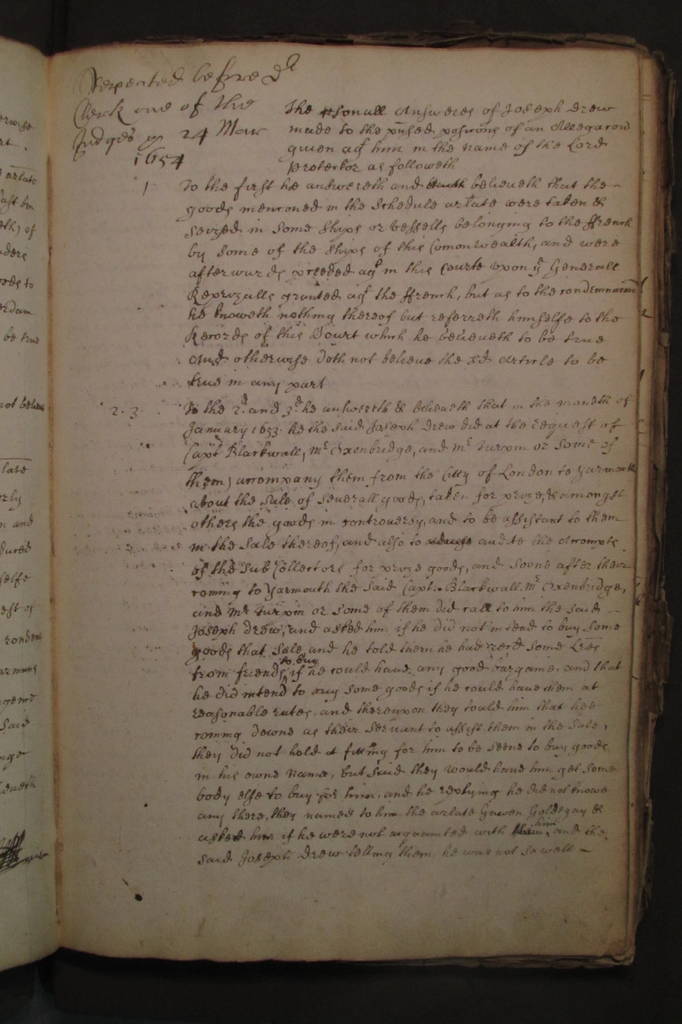 Repeated before Dr
Clerk one of the
Judges &c 24 Mar
1654
The psonall Answeres of Joseph Drew
made to the pnsed posicons of an Allegacon
given agt him in the name of the Lord
Protector as followeth
1 To the first he answereth and beleiveth that the
goods mencioned in the Schedule arlate were taken &
seized in some Ships or vessells belonging to the ffrench
by some of the Ships of this Comonwealth, and were
afterwards pceeded agt in this Courte upon ye Generall
Reprizalls granted agt the ffrench, but as to the condemnacon
he knoweth nothing thereof but referreth himselfe to the
Records of this Court which he beleiveth to be true
And otherwise doth not beleive the sd Article to be
true in any part
2. 3. To the 2d and 3d he answereth & beleiveth that in the moneth of
January 1653 he the said Joseph Drew did at the request of
Capt Blackwall, Mr Oxenbridge, and Mr Turpin or some of
them, accompany them from the Citty of London to Yarmouth
about the Sale of severall goods, taken for prize, & amongst
others the goods in controversy, and to be assistant to them
in the sale thereof, and also to audite the Accompts
of the Sub Collectors for prize goods, and soone after their
coming to Yarmouth the said Capt. Blackwall, Mr Oxenbridge,
and Mr Turpin or some of them did call to him the said
Joseph Drew, and asked him if he did not intend to buy some
goods that Sale, and he told them he had recd some Lres
from friends to buy if he could have any good bargaine, and that
he did intend to buy some goods if he could have them at
reasonable rates, and thereupon they tould him that hee
coming downe as their servant to assist them in the Sale,
they did not hold it fitting for him to be seene to buy goods
in his owne name, but said they would have him get some
body else to buy for him, and he replying he did not knowe
any there, they named to him the arlate Gawen Goldegay &
asked him if he were not acquainted with him, and the
said Joseph Drew telling them he was not so well